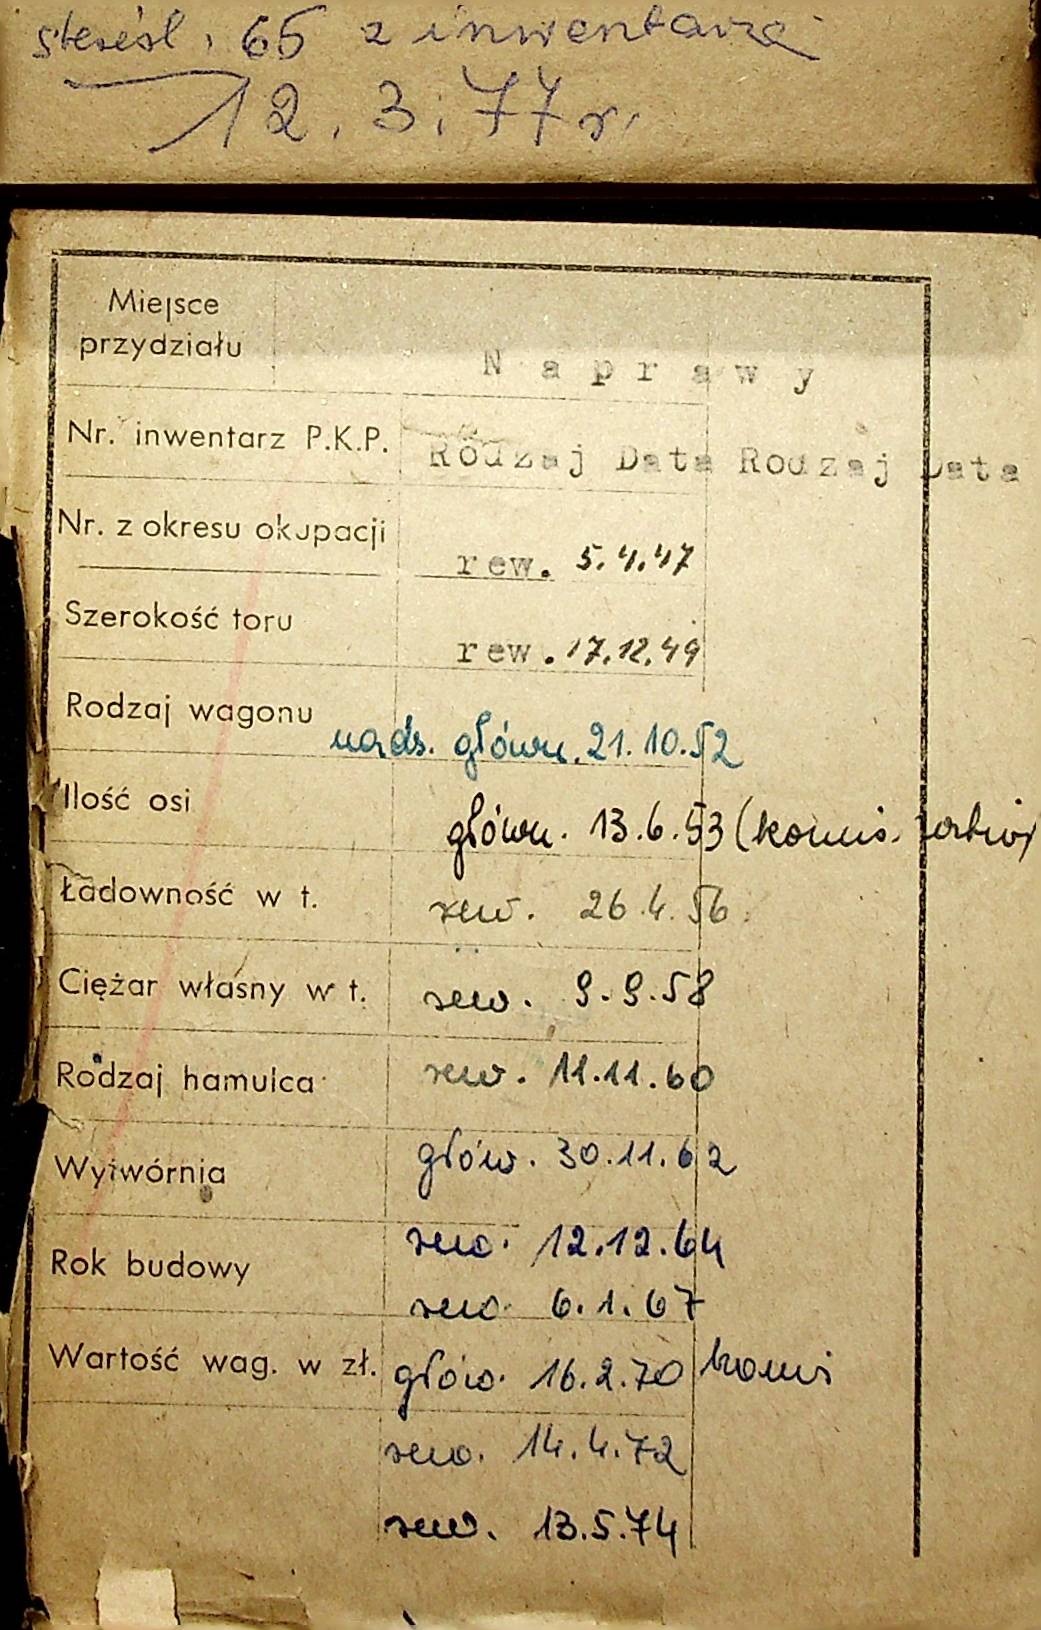 skreśl. 65 z inwentarza
12.3.77 r.
Miejsce
przydziału
Naprawy
Nr. inwentarz P.K.P.
Rodzaj Data Rodzaj Data
Nr. z okresu okupacji
rew. 5.4.47
Szerokość toru
rew. 17.12.49
Rodzaj wagonu
nads. główn. 21.10.52
Ilość osi
główn. 13.6.53 (komis.
Ładowność w t.
rew. 26.4.56
Ciężar własny w t.
rew. 9.9.58
Rodzaj hamulca
rew. 11.11.60
Wytwórnia
głów. 30.11.62
rew. 12.12.64
Rok budowy
rew. 6.1.67
Wartość wag. w zł.
głów. 16.2.70 komis
rew. 14.4.72
rew. 13.5.74